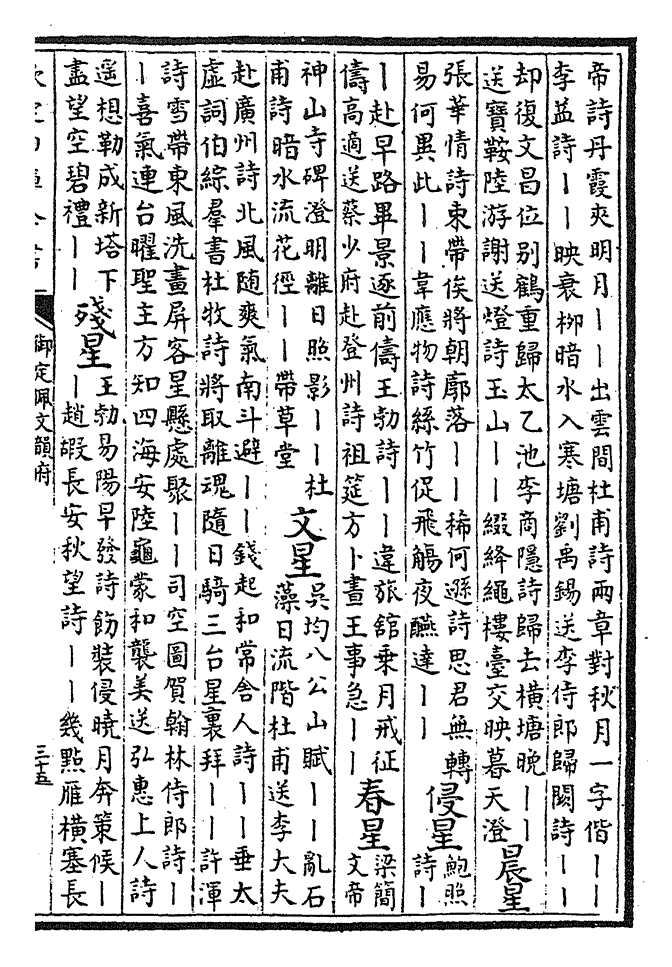 帝詩丹霞夾明月｜｜出雲間杜甫詩兩章對秋月一字偕｜｜
李益詩｜｜映衰栁暗水入寒塘劉禹錫送李侍郎歸闕詩｜｜
却復文昌位别鶴重歸太乙池李商隱詩歸去横塘晚｜｜
送寶鞍陸游謝送燈詩玉山｜｜綴絳繩樓臺交映暮天澄
晨星
張華情詩束帶俟將朝廓落｜｜稀何遜詩思君無轉
易何異此｜｜韋應物詩絲竹促飛觴夜醼達｜｜
侵星
鮑照詩｜
｜赴早路畢景逐前儔王勃詩｜｜違旅舘乗月戒征
儔高適送蔡少府赴登州詩祖筵方卜晝王事急｜｜
春星
梁簡文帝
神山寺碑澄明離日照影｜｜杜
甫詩暗水流花徑｜｜帶草堂
文星
吴均八公山賦｜｜亂石
藻日流階杜甫送李大夫
赴廣州詩北風随爽氣南斗避｜｜錢起和常舎人詩｜｜垂太
虚詞伯綜羣書杜牧詩將取離魂隨日騎三台星裏拜｜｜許渾
詩雪帶東風洗畫屏客星懸處聚｜｜司空圖賀翰林侍郎詩｜
｜喜氣連台曜聖主方知四海安陸龜蒙和襲美送弘惠上人詩
遥想勒成新塔下
盡望空碧禮｜｜
殘星
王勃易陽早發詩飭裝侵曉月奔策候｜
｜趙嘏長安秋望詩｜｜幾點雁横塞長
御定佩文韻府
三十五